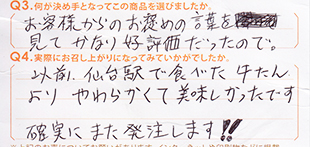 Q3.何が決め手となってこの商品を選びましたか。
お客様からのお褒めの言葉を
見てかなり好評価だったので。
Q4.実際にお召し上がりになってみていかがでしたか。
以前、仙台駅で食べた牛たん
より やわらかくて美味しかったです
確実にまた発注します!!